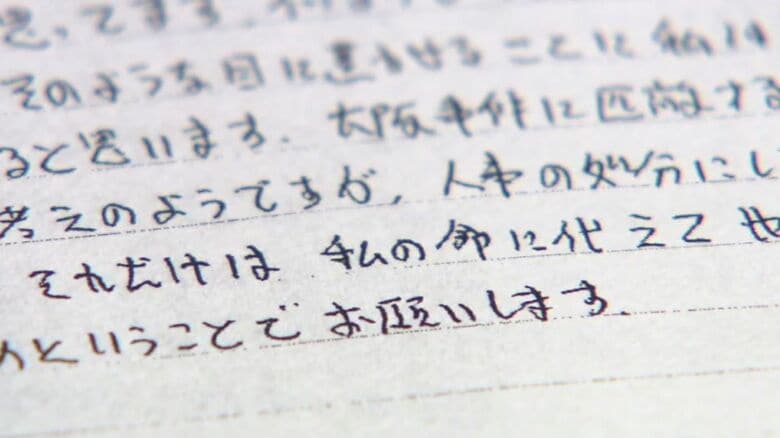 思ってます。
そのような目に遭わせることに私は
ると思います。大阪事件に匹敵する
考えのようですが、人事の処分にし
それだけは私の命に代えてや
ということでお願いします。